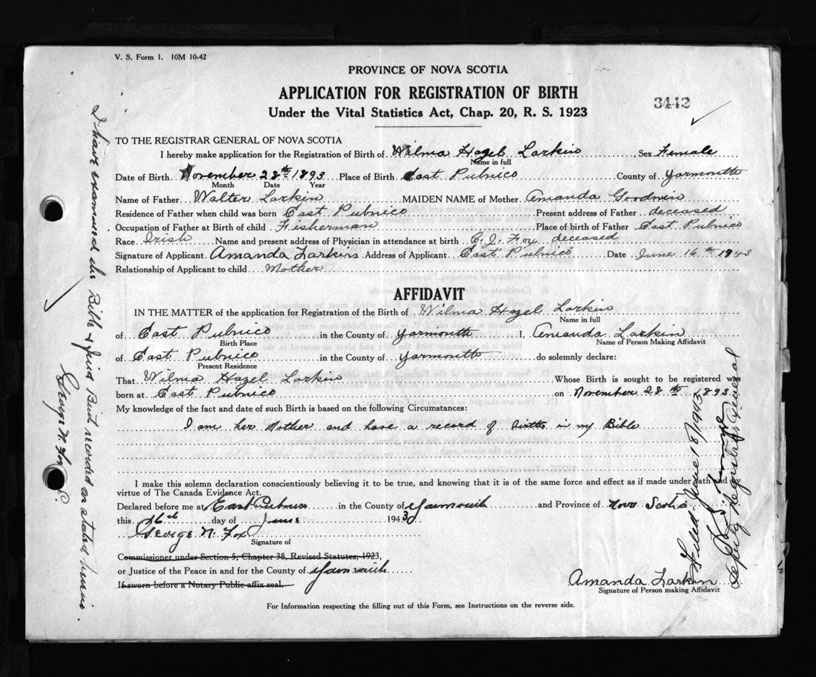 V. S. Form 1. 10M 10-42
PROVINCE OF NOVA SCOTIA
APPLICATION FOR REGISTRATION OF BIRTH
Under the Vital Statistics Act, Chap. 20, R. S. 1923
3442
TO THE REGISTRAR GENERAL OF NOVA SCOTIA
I hereby make application for the Registration of Birth of Wilma Hazel Larkin Sex Female
Name in full
Date of Birth November 28th 1893 Place of Birth East Pubnico County of Yarmouth
Month Date Year
Name of Father Walter Larkin MAIDEN NAME of Mother Amanda Goodwin
Residence of Father when child was born East Pubnico Present address of Father deceased
Occupation of Father at Birth of child Fisherman Place of birth of Father East Pubnico
Race Irish Name and present address of Physician in attendance at birth C. J. Fox deceased
Signature of Applicant Amanda Larkin Address of Applicant East Pubnico Date June 16th 1943
Relationship of Applicant to child Mother
AFFIDAVIT
IN THE MATTER of the application for Registration of the Birth of Wilma Hazel Larkin
Name in full
of East Pubnico in the County of Yarmouth I, Amanda Larkin
Birth Place Name of Person Making Affidavit
of East Pubnico in the County of Yarmouth do solemnly declare:
Present Residence
That Wilma Hazel Larkin Whose Birth is sought to be registered was
born at East Pubnico on November 28th 1893
My knowledge of the fact and date of such Birth is based on the following Circumstances:
I am her Mother and have a record of births in my Bible
I make this solemn declaration conscientiously believing it to be true, and knowing that it is of the same force and effect as if made under oath and by
virtue of The Canada Evidence Act.
Declared before me at East Pubnico in the County of Yarmouth and Province of Nova Scotia
this 16th day of June 1943
George N. Fox
Signature of
Commissioner under Section 5, Chapter 38, Revised Statutes, 1923,
or Justice of the Peace in and for the County of Yarmouth
If sworn before a Notary Public affix seal.
Amanda Larkin
Signature of Person making Affidavit
For Information respecting the filling out of this Form, see Instructions on the reverse side.
I have examined the Bible & find Birth recorded as stated herein.
George N. Fox J.P.
Filed June 18/1943
Deputy Registrar General